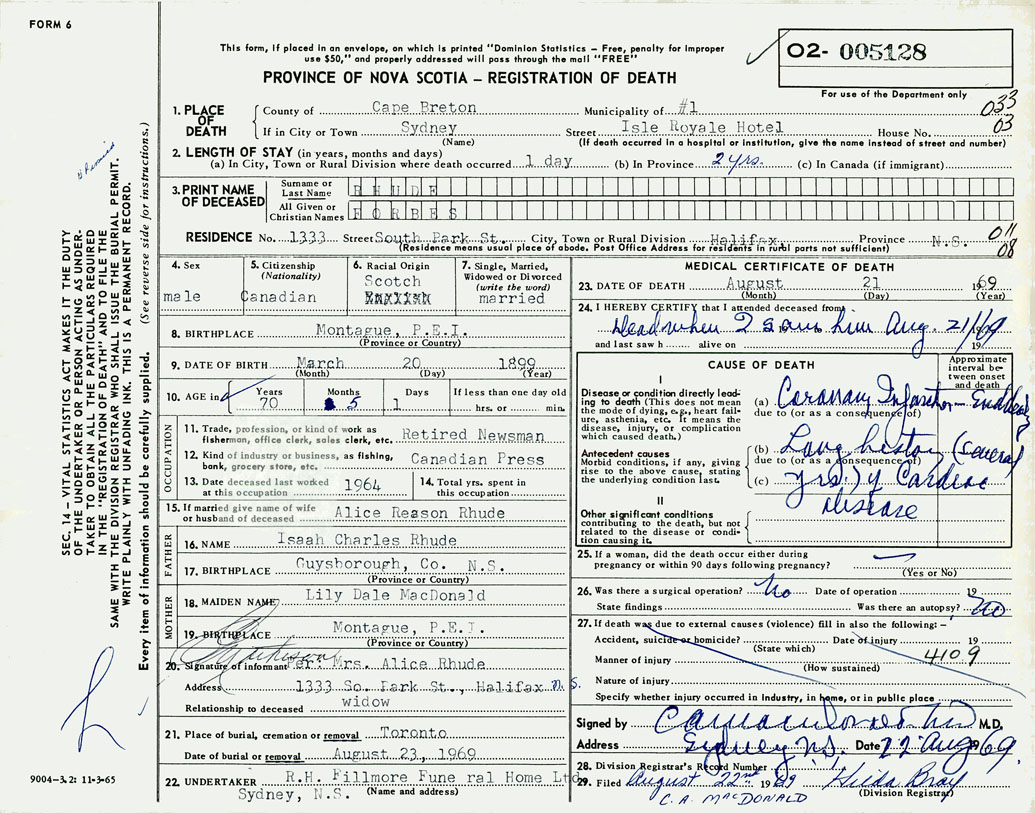 FORM 6
This form, if placed in an envelope, on which is printed "Dominion Statistics – Free, penalty for improper
use $50," and properly addressed will pass through the mail "FREE"
PROVINCE OF NOVA SCOTIA – REGISTRATION OF DEATH
02- 005128
For use of the Department only
033
03
1. PLACE OF DEATH
County of Cape Breton Municipality of #1
If in City or Town Sydney Street Isle Royale Hotel House No.
(Name) (If death occurred in a hospital or institution, give the name instead of street and number)
2. LENGTH OF STAY (in years, months and days)
(a) In City, Town or Rural Division where death occurred 1 day (b) In Province 2 yrs. (c) In Canada (if immigrant)
3. PRINT NAME OF DECEASED
Surname or Last Name RHUDE
All Given or Christian Names FORBES
RESIDENCE No. 1333 Street South Park St. City, Town or Rural Division Halifax Province N.S.
(Residence means usual place of abode. Post Office Address for residents in rural parts not sufficient)
011
08
4. Sex
male
5. Citizenship
(Nationality)
Canadian
6. Racial Origin
Scotch
7. Single, Married,
Widowed or Divorced
(write the word)
married
8. BIRTHPLACE Montague, P.E.I.
(Province or Country)
9. DATE OF BIRTH March 20 1899
(Month) (Day) (Year)
10. AGE in Years Months Days If less than one day old
70 5 1 hrs. or min.
OCCUPATION
11. Trade, profession, or kind of work as
fisherman, office clerk, sales clerk, etc. Retired Newsman
12. Kind of industry or business, as fishing,
bank, grocery store, etc. Canadian Press
13. Date deceased last worked
at this occupation 1964
14. Total yrs. spent in
this occupation
15. If married give name of wife
or husband of deceased Alice Reason Rhude
FATHER
16. NAME Isaah Charles Rhude
17. BIRTHPLACE Guysborough, Co. N.S.
(Province or Country)
MOTHER
18. MAIDEN NAME Lily Dale MacDonald
19. BIRTHPLACE Montague, P.E.I.
(Province or Country)
20. Signature of informant Per: Mrs. Alice Rhude
Address 1333 So. Park St., Halifax N.S.
Relationship to deceased widow
21. Place of burial, cremation or removal Toronto
Date of burial or removal August 23, 1969
22. UNDERTAKER R.H. Fillmore Fune ral Home Ltd.
Sydney, N.S. (Name and address)
MEDICAL CERTIFICATE OF DEATH
23. DATE OF DEATH August 21 1969
(Month) (Day) (Year)
24. I HEREBY CERTIFY that I attended deceased from
Dead when I saw him Aug. 21/69
and last saw h alive on 19
CAUSE OF DEATH
Approximate
interval be-
tween onset
and death
I
Disease or condition directly lead-
ing to death (This does not mean
the mode of dying, e.g., heart fail-
ure, asthenia, etc. It means the
disease, injury, or complication
which caused death.)
(a) Coronary Infarction –
due to (or as a consequence of)
Antecedent causes
Morbid conditions, if any, giving
rise to the above cause, stating
the underlying condition last.
(b) Long history (several
due to (or as a consequence of)
(c) yrs.) of Cardiac
disease
II
Other significant conditions
contributing to the death, but not
related to the disease or condi-
tion causing it.
25. If a woman, did the death occur either during
pregnancy or within 90 days following pregnancy?
(Yes or No)
26. Was there a surgical operation? No Date of operation 19
State findings Was there an autopsy? No
27. If death was due to external causes (violence) fill in also the following: –
Accident, suicide or homicide? Date of injury 19
(State which)
4109
Manner of injury
(How sustained)
Nature of injury
Specify whether injury occurred in industry, in home, or in public place
Signed by M.D.
Address Sydney N.S. Date 22 Aug 1969.
28. Division Registrar's Record Number
29. Filed August 22nd 1969 Hilda Bray
(Division Registrar)
C. A. MACDONALD
SEC. 14 – VITAL STATISTICS ACT MAKES IT THE DUTY
OF THE UNDERTAKER OR PERSON ACTING AS UNDER-
TAKER TO OBTAIN ALL THE PARTICULARS REQUIRED
IN THE "REGISTRATION OF DEATH" AND TO FILE THE
SAME WITH THE DIVISION REGISTRAR WHO SHALL ISSUE THE BURIAL PERMIT.
WRITE PLAINLY WITH UNFADING INK. THIS IS A PERMANENT RECORD.
Every item of information should be carefully supplied. (See reverse side for instructions.)
9004–3.2: 11-3-65